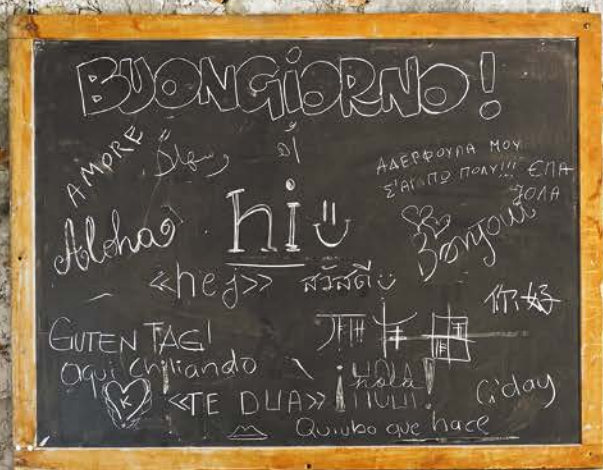 BUONGiORNO!
AMORE
وسهلاً
ΑΔΕΡΦΟΥΛΑ ΜΟΥ
Σ'ΑΓΑΠΩ ΠΟΛΥ!!! ΕΠΑ
hi
Aloha
Bonjour
«hej»
สวัสดี
你好
GUTEN TAG!
aqui chiliando
¡HOLA!
hola
K
«TE DUA»
G'day
Quiubo que hace